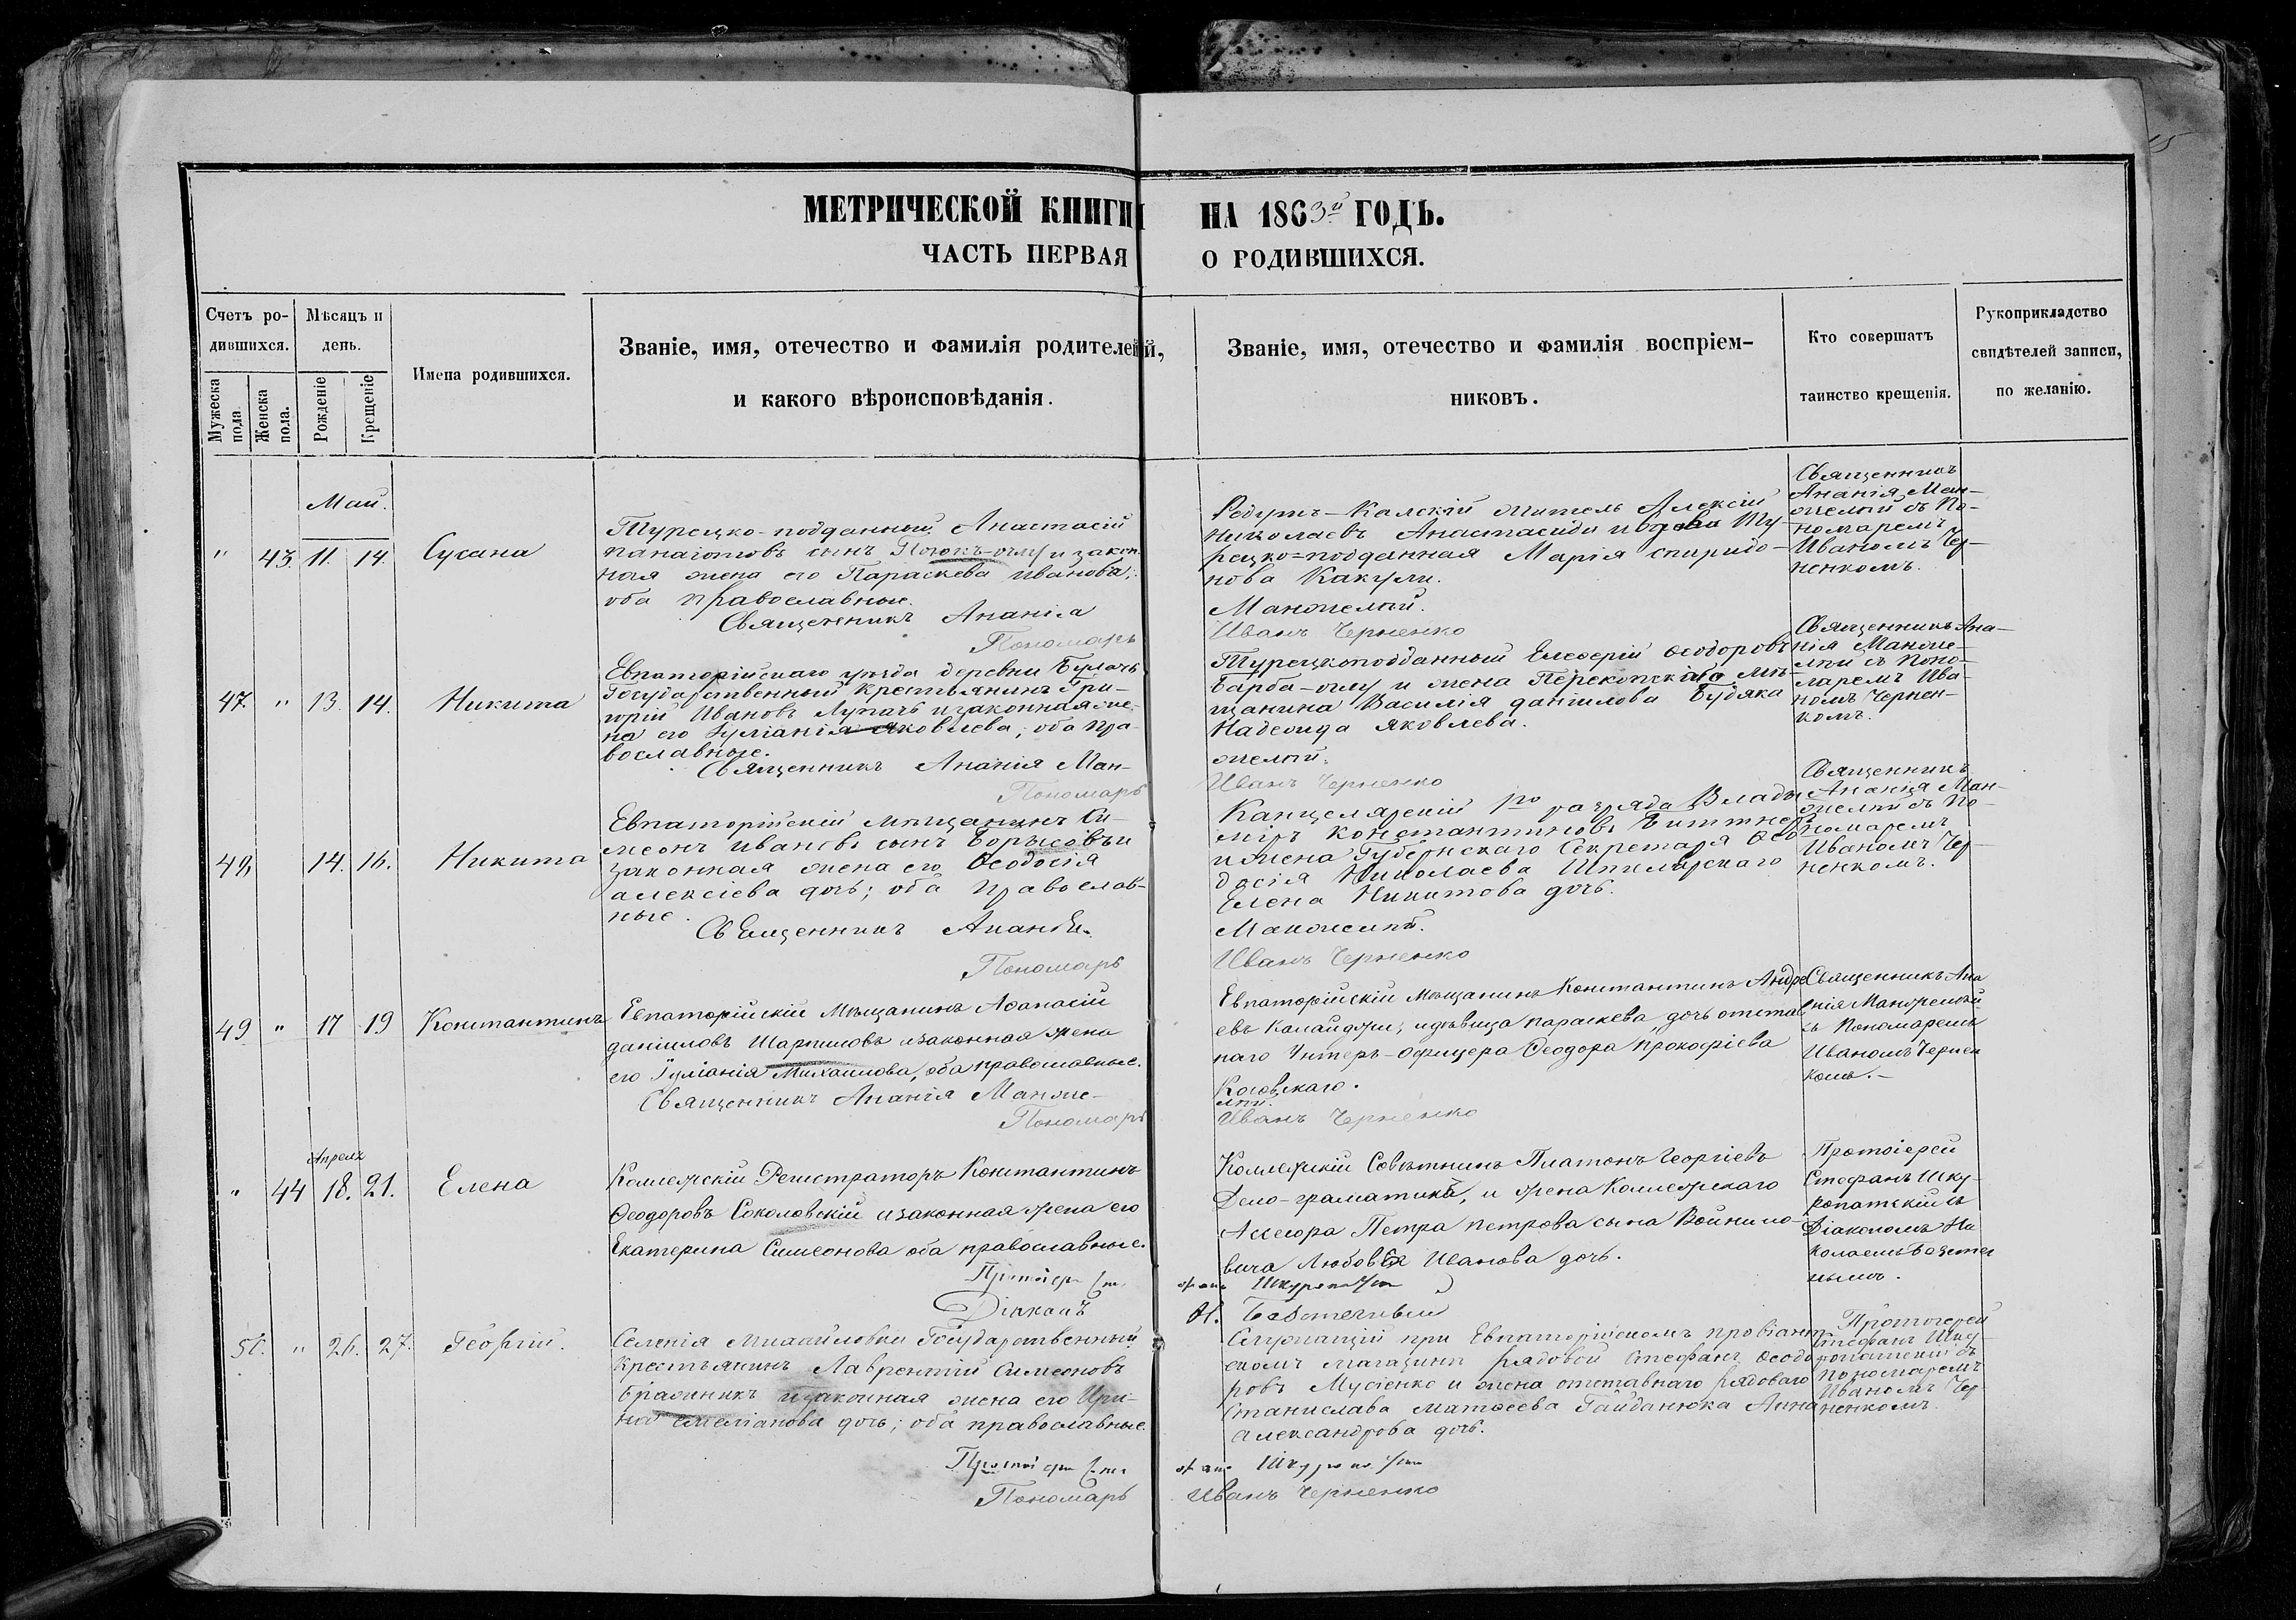 МЕТРИЧЕСКОЙ КНИГИ НА 1863й ГОДЪ.
ЧАСТЬ ПЕРВАЯ О РОДИВШИХСЯ.
Счетъ ро-
дившихся.
Мужеска пола.
Женска пола.
Мѣсяцъ и
день.
Рожденіе
Крещеніе
Имена родившихся.
Званіе, имя, отечество и фамилія родителей,
и какого вѣроисповѣданія.
Званіе, имя, отечество и фамилія воспріем-
никовъ.
Кто совершатъ
таинство крещенія.
Рукоприкладство
свидѣтелей записи,
по желанію.
Май.
" 43. 11. 14. Сусана
Турецко-подданный Анастасій
Панаіотовъ сынъ и закон-
ная жена его Параскева Иванова;
оба православные.
Священникъ Ананіа
Пономарь
Редутъ-Калскій житель Алексій
Николаевъ Анастасиди и Ту-
рецко=подданная Марія Спиридо-
нова Какули.
Манжелѣй.
Иванъ Черненко
Священникъ
Ананія Ман-
желѣй съ По-
номаремъ
Иваномъ Чер-
ненкомъ.
47. " 13. 14. Никита
Евпаторійскаго уѣзда деревни
Государственный Крестьянинъ Гри-
горій Ивановъ Лупачъ и законная же-
на его Іуліанія Яковлева; оба пра-
вославные.
Священникъ Ананія Ман-
Пономарь
Турецкоподданный Елевѳерій Ѳеодоровъ
Барба-оглу и жена Перекопскаго мѣ-
щанина Василія Даніилова Будяка
Надежда Яковлева.
желѣй.
Иванъ Черненко
Священникъ Ана-
нія Манже-
лѣй съ Поно-
маремъ Ива-
номъ Чернен-
комъ.
48. 14. 16. Никита
Евпаторійскій мѣщанинъ Си-
меонъ Ивановъ сынъ Борисовъ и
законная жена его Ѳеодосія
Алексіева дочь; оба православ-
ные.
Священникъ Ананія
Пономарь
Канцелярскій 1го разряда Влади-
міръ Константиновъ Биттнеръ
и жена Губернскаго Секретаря Ѳео-
досія Николаева Шпилярскаго
Елена Никитова дочь.
Манжелѣй.
Иванъ Черненко
Священникъ
Ананія Ман-
желѣй съ По-
номаремъ
Иваномъ Чер-
ненкомъ.
49 " 17 19 Константинъ
Евпаторійскій мѣщанинъ Аѳанасій
Даніиловъ Шарпиловъ и законная жена
его Іуліанія Михаилова, оба православные.
Священникъ Ананія Манже-
Пономарь
Евпаторійскій мѣщанинъ Константинъ Андре-
евъ Калайджи, и дѣвица Параскева дочь отстав-
наго Унтеръ-офицера Ѳеодора Прокофіева
Косовскаго.
лѣй.
Иванъ Черненко
Священникъ Ана
нія Манжелѣй
съ Пономаремъ
Иваномъ Чернен
комъ.-
Апреля
" 44 18. 21. Елена
Коллежскій Регистраторъ Константинъ
Ѳеодоровъ Соколовскій и законная жена его
Екатерина Симеонова оба православные.
Протоіерей Сте
Діаконъ
Коллежскій Совѣтникъ Платонъ Георгіевъ
Дело-граматика, и жена Коллежскаго
Ассесора Петра Петрова сына Войнико-
вича Любовь Иванова дочь.
фанъ
Н.
Протоіерей
Стефанъ Шку-
ропатскій съ
Діакономъ Ни
колаемъ
нымъ.
50. " 26. 27. Георгій.
Селенія Михайловки Государственный
Крестьянинъ Лаврентій Симеоновъ
и законная жена его Ири-
на Емеліанова дочь; оба православные.
Протоіерей Сте
Пономарь
Служащій при Евпаторійскомъ провіант-
скомъ магазинѣ рядовой Стефанъ Ѳеодо-
ровъ Мусіенко и жена отставнаго рядоваго
Станислава Матѳеева Гайданюка Анна
Александрова дочь.
фанъ
Иванъ Черненко
Протоіерей
Стефанъ Шку-
ропатскій съ
Пономаремъ
Иваномъ Чер-
ненкомъ.